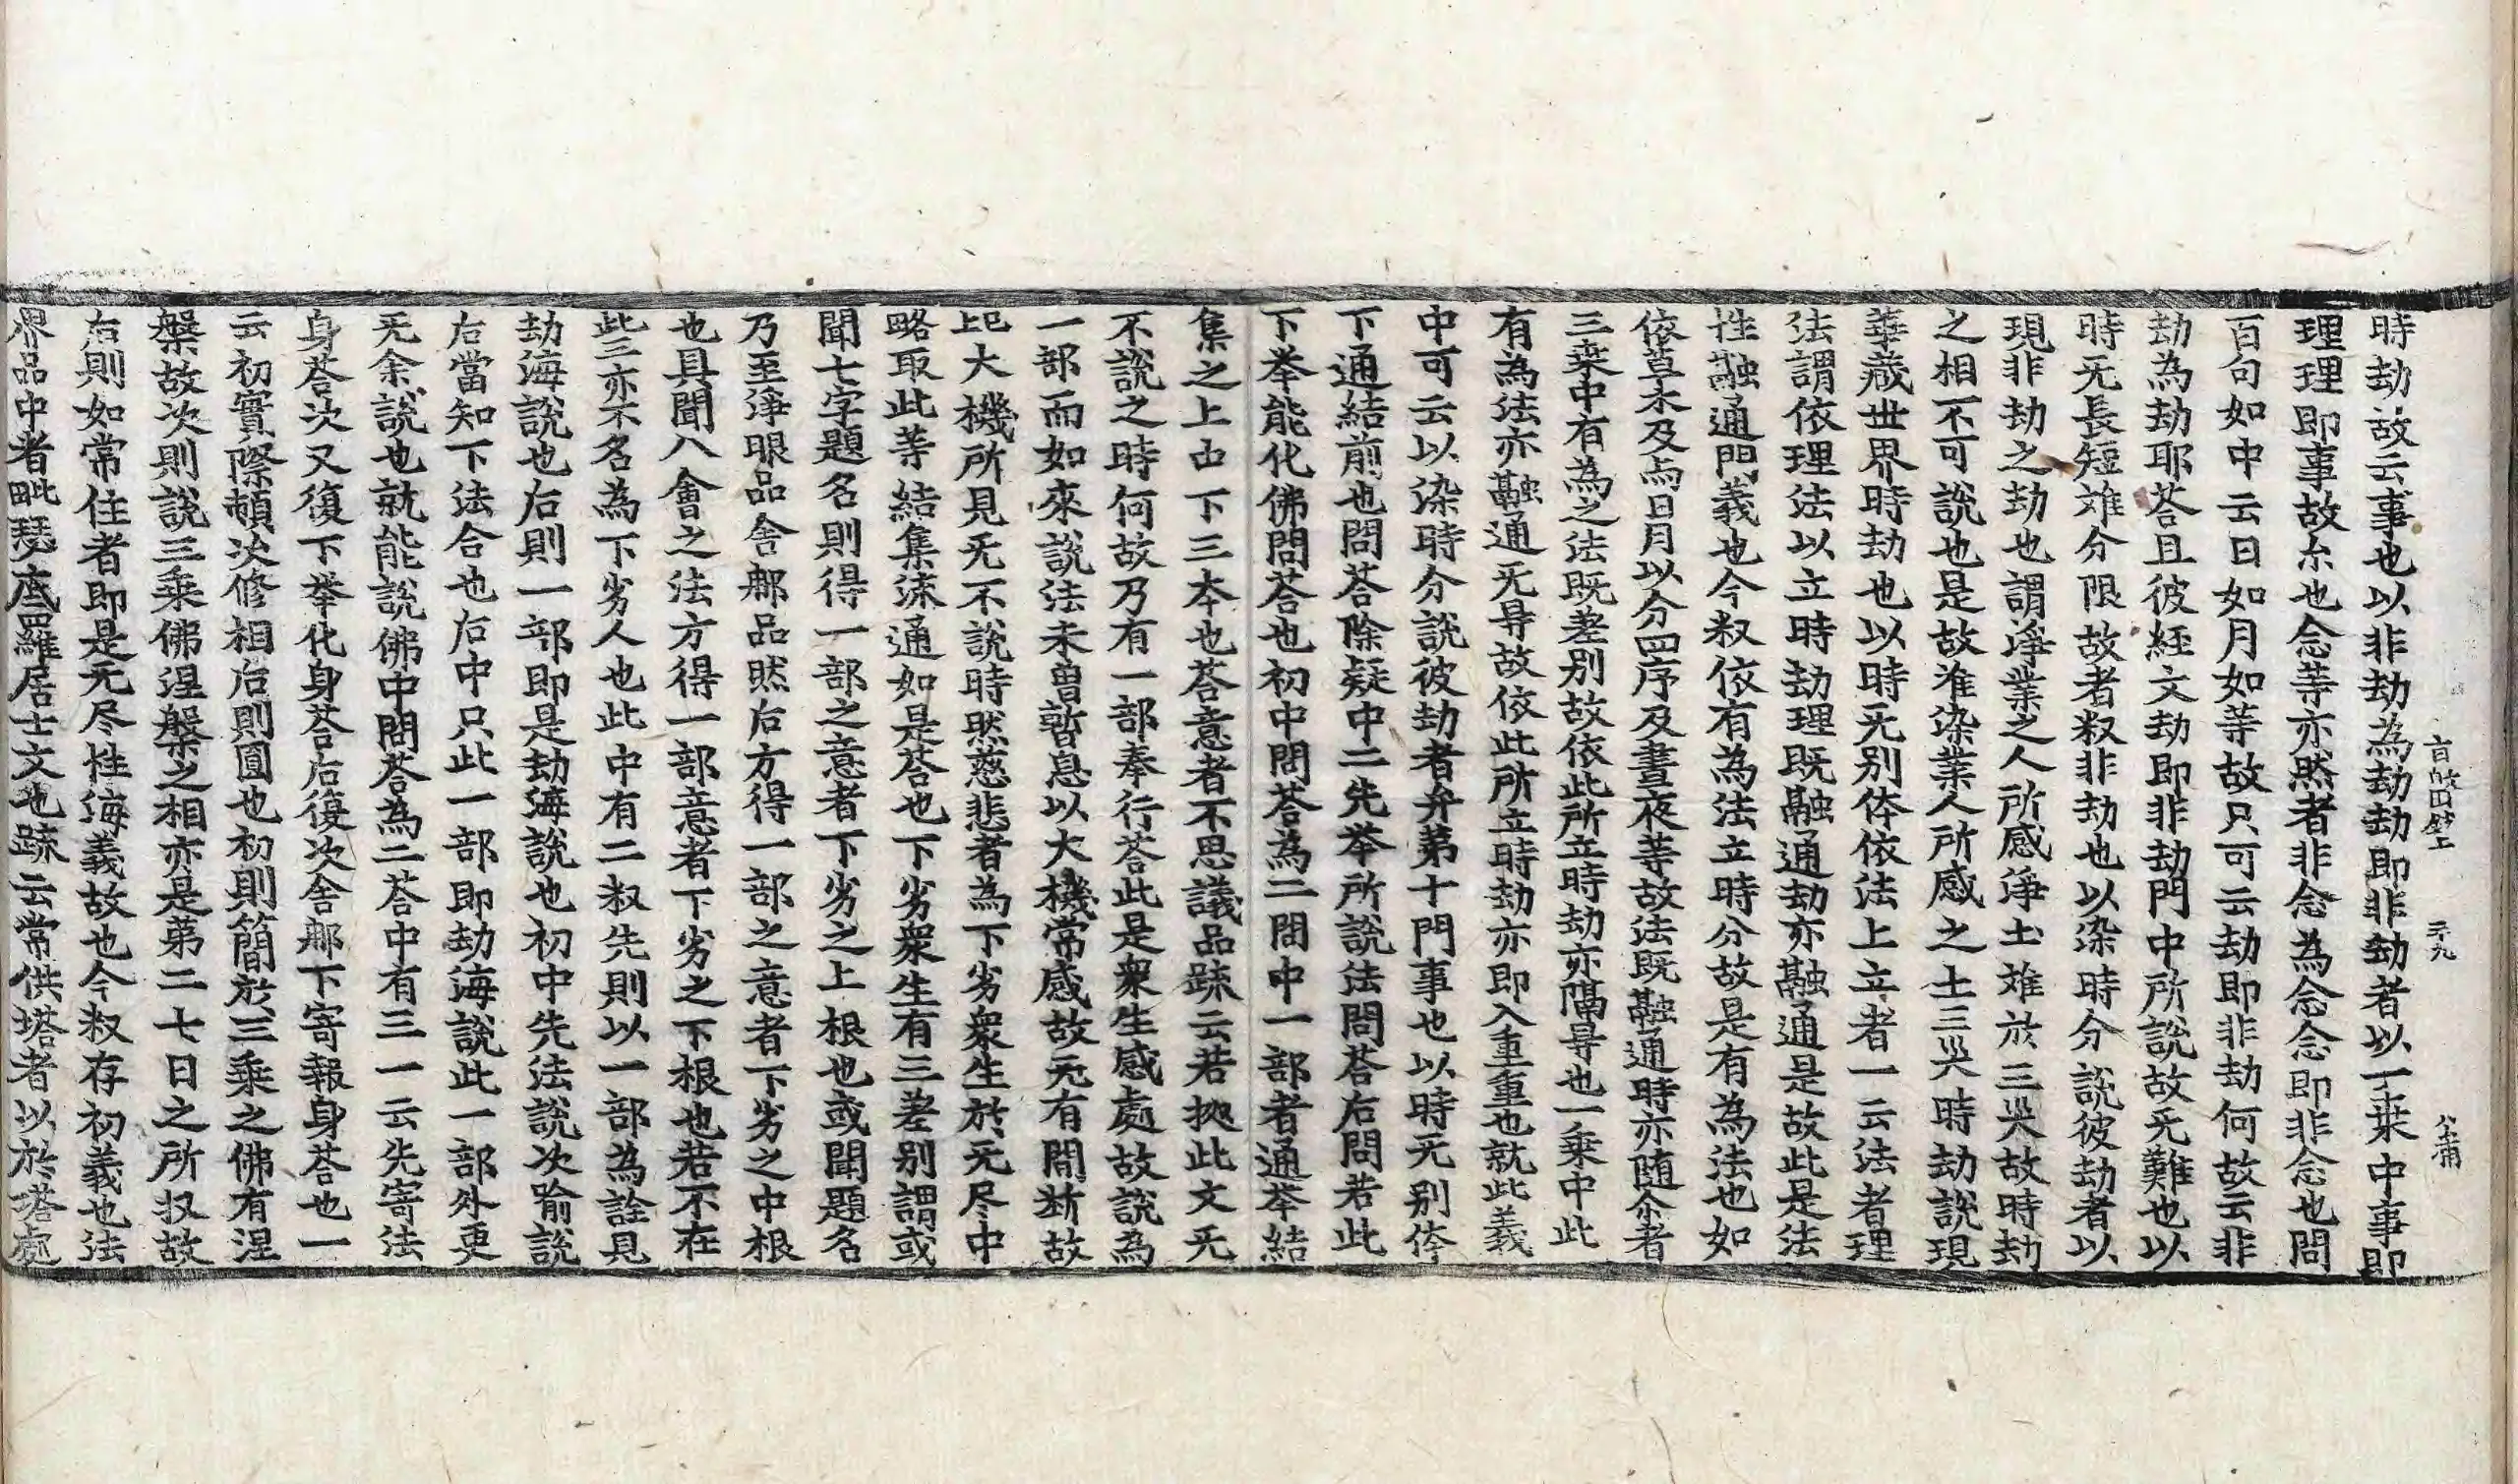 時劫故云事也以非劫為劫劫即非劫者以一乗中事即
理理即事故尒也念等亦然者非念為念念即非念也問
百句如中云日如月如等故只可云劫即非劫何故云非
劫為劫耶荅且彼經文劫即非劫門中所說故无難也以
時无長短难分限故者叙非劫也以染時分說彼劫者以
現非劫之劫也謂淨業之人所感淨土难於三灾故時劫
之相不可說也是故淮染業人所感之土三灾時劫說現
華蔵世界時劫也以時无別体依法上立者一云法者理
法謂依理法以立時劫理既融通劫亦融通是故此是法
性融通門義也今叙依有為法立時分故是有為法也如
依草木及与日月以分四序及晝夜等故法既融通時亦随尒者
三乗中有為之法既差别故依此所立時劫亦隔㝵也一乗中此
有為法亦融通无㝵故依此所立時劫亦即入重重也就此義
中可云以染時分說彼劫者弁第十門事也以時无别体
下通結前也問荅除疑中二先举所說法問荅后問若此
下举能化佛問荅也初中問荅為二問中一部者通举結
集之上由下三夲也荅意者不思議品䟽云若㨿此文无
不說之時何故乃有一部奉行荅此是衆生感處故說為
一部而如來說法未曽暫息以大機常感故无有間断故
大機所見无不說時然慈悲者為下劣衆生於无尽中
略取此等結集流通如是荅也下劣衆生有三差别謂或
聞七字題名則得一部之意者下劣之上根也或聞題名
乃至淨眼品舍那品然后方得一部之意者下劣之中根
也具聞八會之法方得一部意者下劣之下根也若不在
此三亦不名為下劣人也此中有二叙先則以一部為詮見
劫海說也后則一部即是劫海說也初中先法說次喻說
后當知下法合也后中只此一部即劫海說此一部外更
无余說也就能說佛中問荅為二荅中有三一云先寄法
身荅次又復下举化身荅后復次舍那下寄報身荅也一
云初實際頓次修相后則圓也初則簡於三乗之佛有涅
槃故次則說三乗佛涅槃之相亦是第二七日之所収故
后則如常住者即是无尽性海義故也今叙存初義也法
界品中者毗瑟底羅居士文也䟽云常供塔者以於塔處